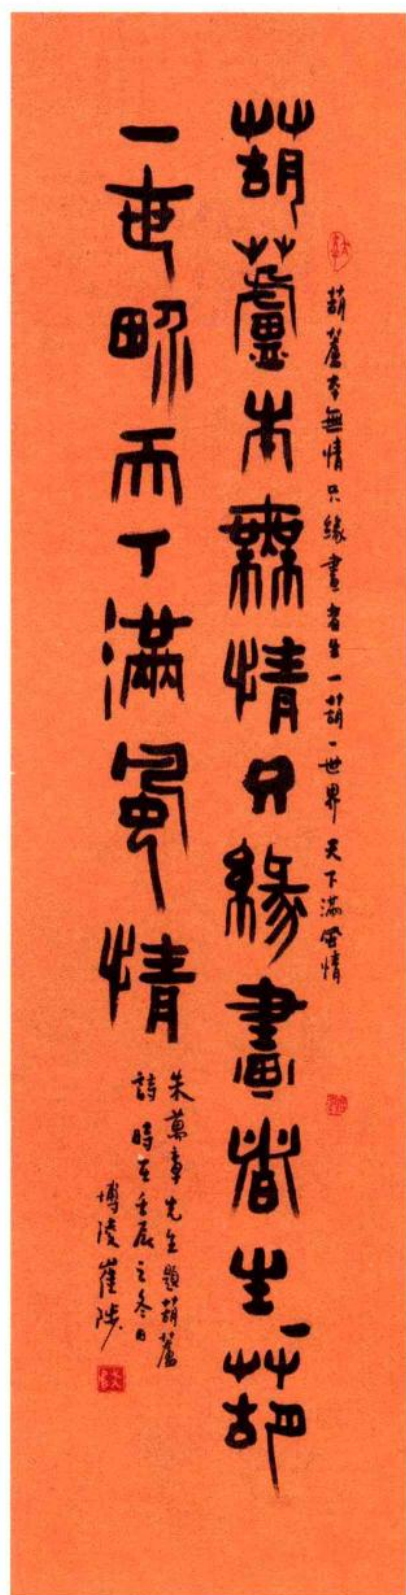 葫蘆本無情只緣畫者生一葫一世界天下滿風情
葫蘆本無情只緣畫者生一葫
一世界天下滿風情
朱萬章先生題葫蘆
詩時在壬辰之冬日
博陵崔陟